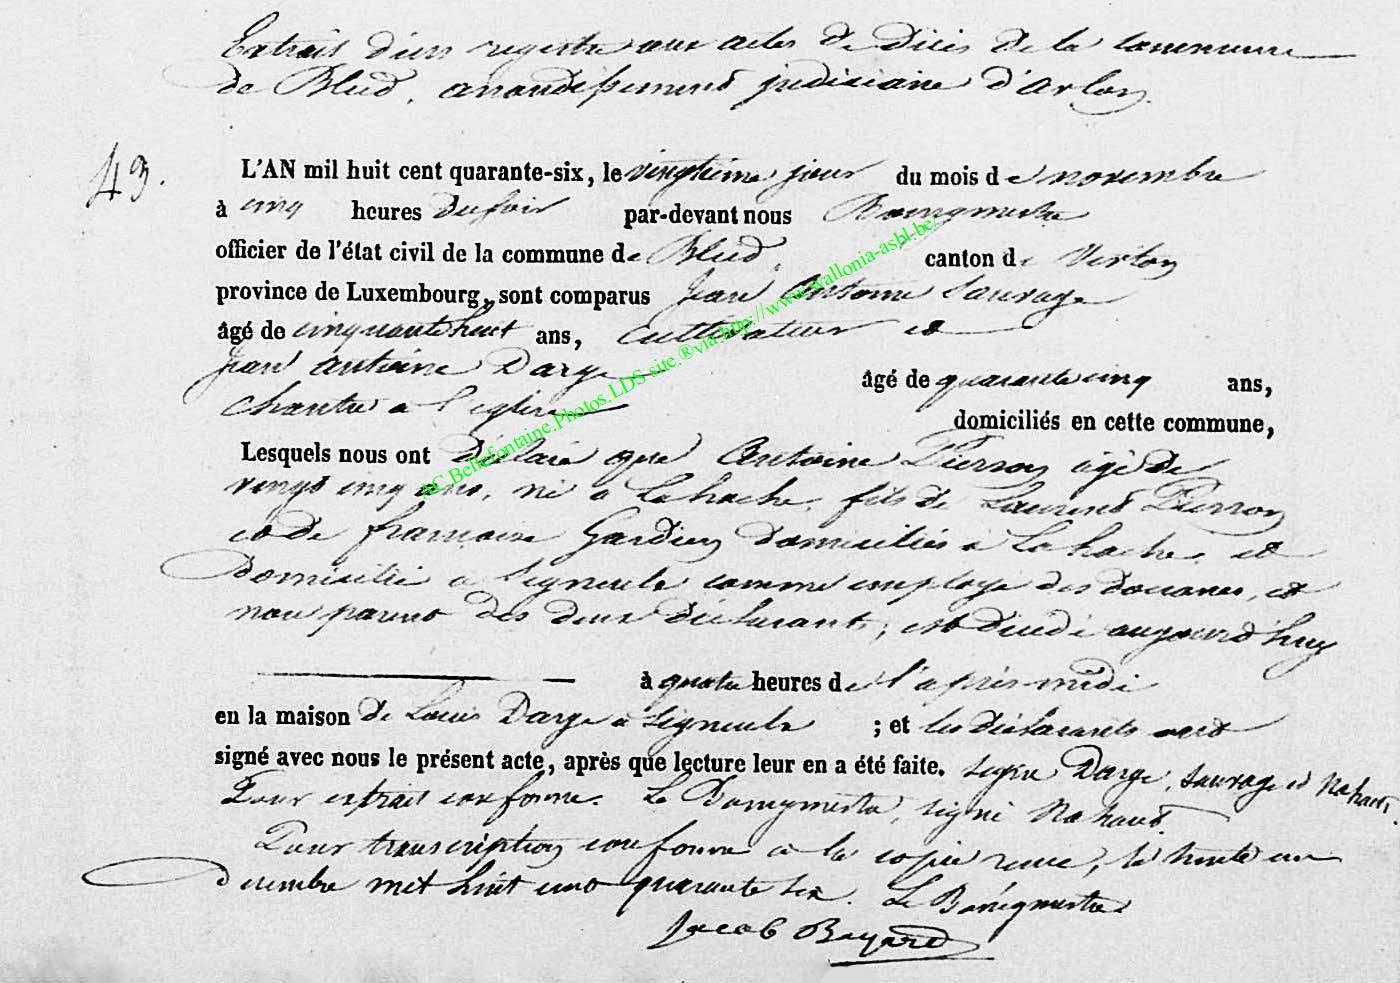 Extrait d'un registre aux actes de Décès de la commune
de Bleid, arrondissement judiciaire d'Arlon.
43.
L'AN mil huit cent quarante-six, le vingtième jour du mois de novembre
à cinq heures du soir par-devant nous Bourgmestre
officier de l'état civil de la commune de Bleid, canton de Virton
province de Luxembourg, sont comparus Jean Antoine Sauvage
âgé de cinquante huit ans, cultivateur et
Jean Antoine Darge âgé de quarante cinq ans,
chantre à l'église domiciliés en cette commune,
Lesquels nous ont déclaré que Antoine Pierron âgé de
vingt cinq ans, né à Lahache, fils de Laurent Pierron
et de françoise Gardien domiciliés à Lahache, et
domicilié à Signeulx comme employé des douanes, et
non parent des deux déclarants ; est décédé aujourd'huy
à quatre heures de l'après-midi
en la maison de Louis Darge à Signeulx ; et les déclarants ont
signé avec nous le présent acte, après que lecture leur en a été faite. signé Darge, Sauvage et Nahant.
Pour extrait conforme. Le Bourgmestre, signé Nahant.
Pour transcription conforme à la copie reçue, le trente un
décembre mil huit cent quarante six. Le Bourgmestre
Jacob Bayard
AC.Bellefontaine.Photos.LDS-site.®via.http://www.wallonia-asbl.be/